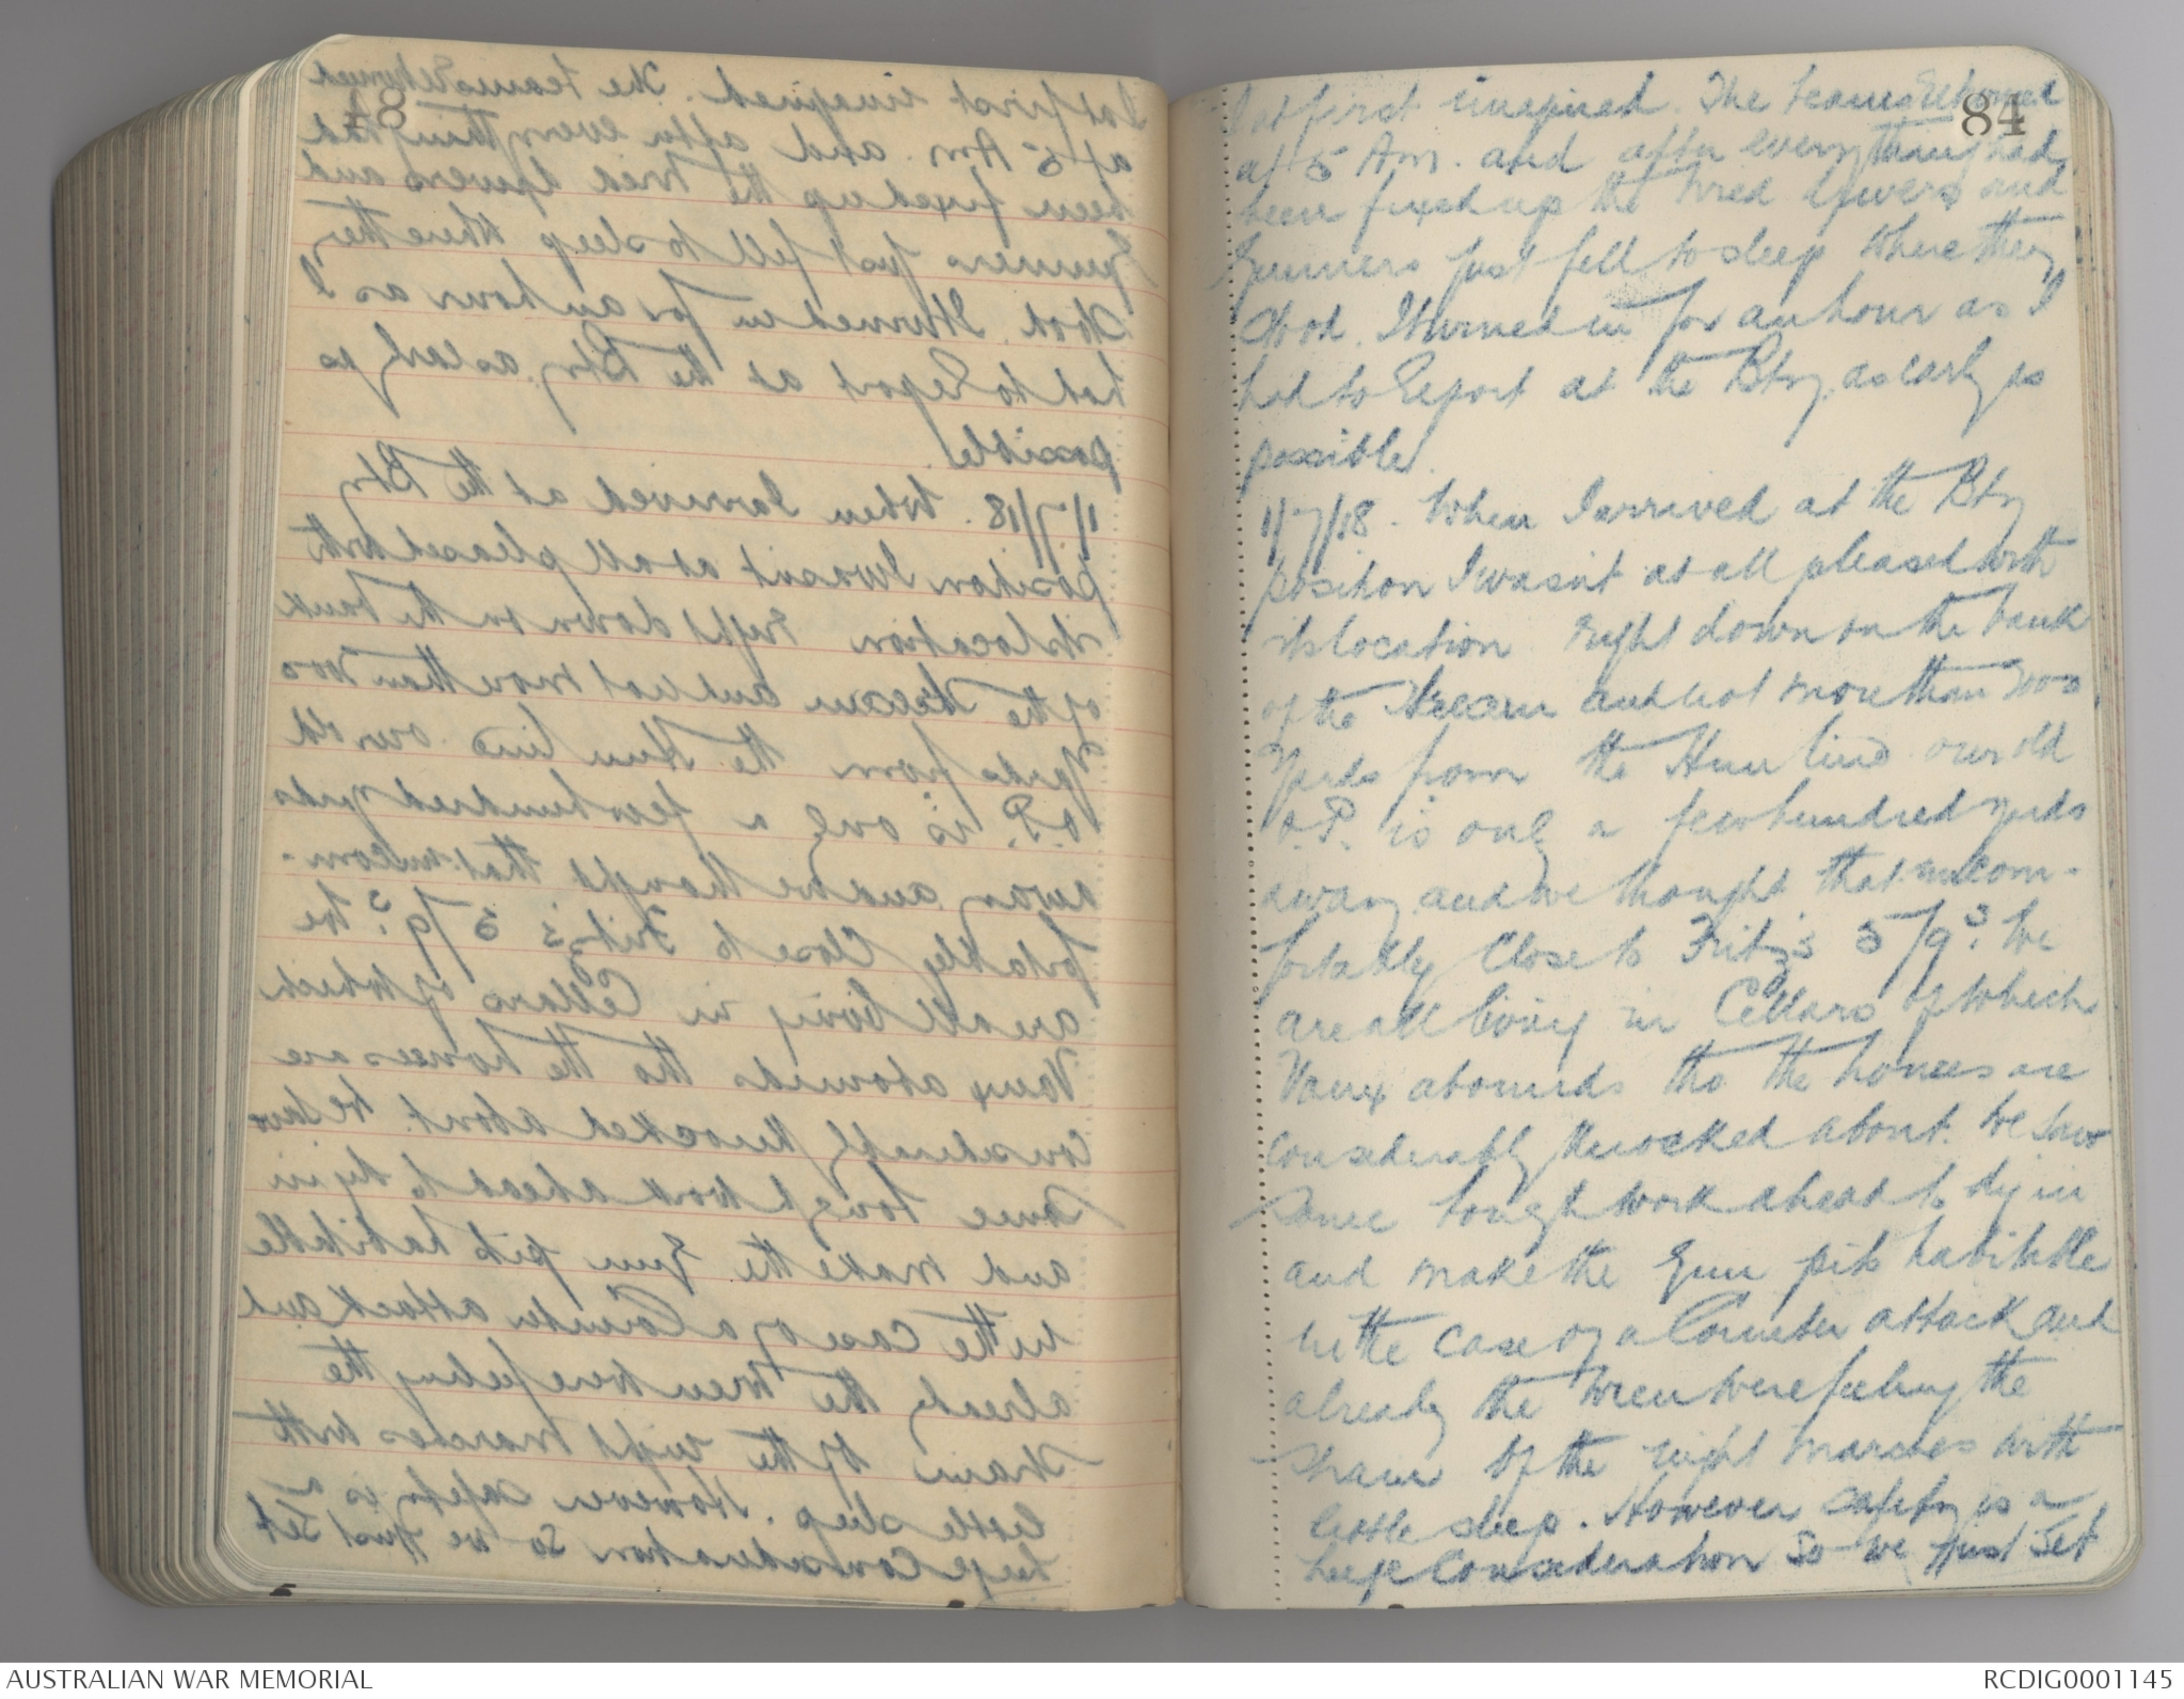 84
I at first imagined. The teams returned
at 5 Am. and after everything had
been fixed up the tired drivers and
Gunners just fell to sleep where they
stood. I turned in for an hour as I
had to report at the Bty. as early as
possible.
1/7/18. When I arrived at the Bty
position I wasn't at all pleased with
its location right down on the bank
of the stream and not more than
yards from the Hun line our old
O.P. is only a few hundred yards
away and we thought that uncom-
fortably close to Fritz's 5/9s. We
are all living in Cellars of which
Vaux abounds tho the houses are
considerably knocked about. We saw
some tough work ahead to dig in
and make the Gun pits habitable
in the case of a Counter attack and
already the men were feeling the
strain of the night marches with
little sleep. However safety is a
huge consideration so we just set
AUSTRALIAN WAR MEMORIAL
RCDIG0001145